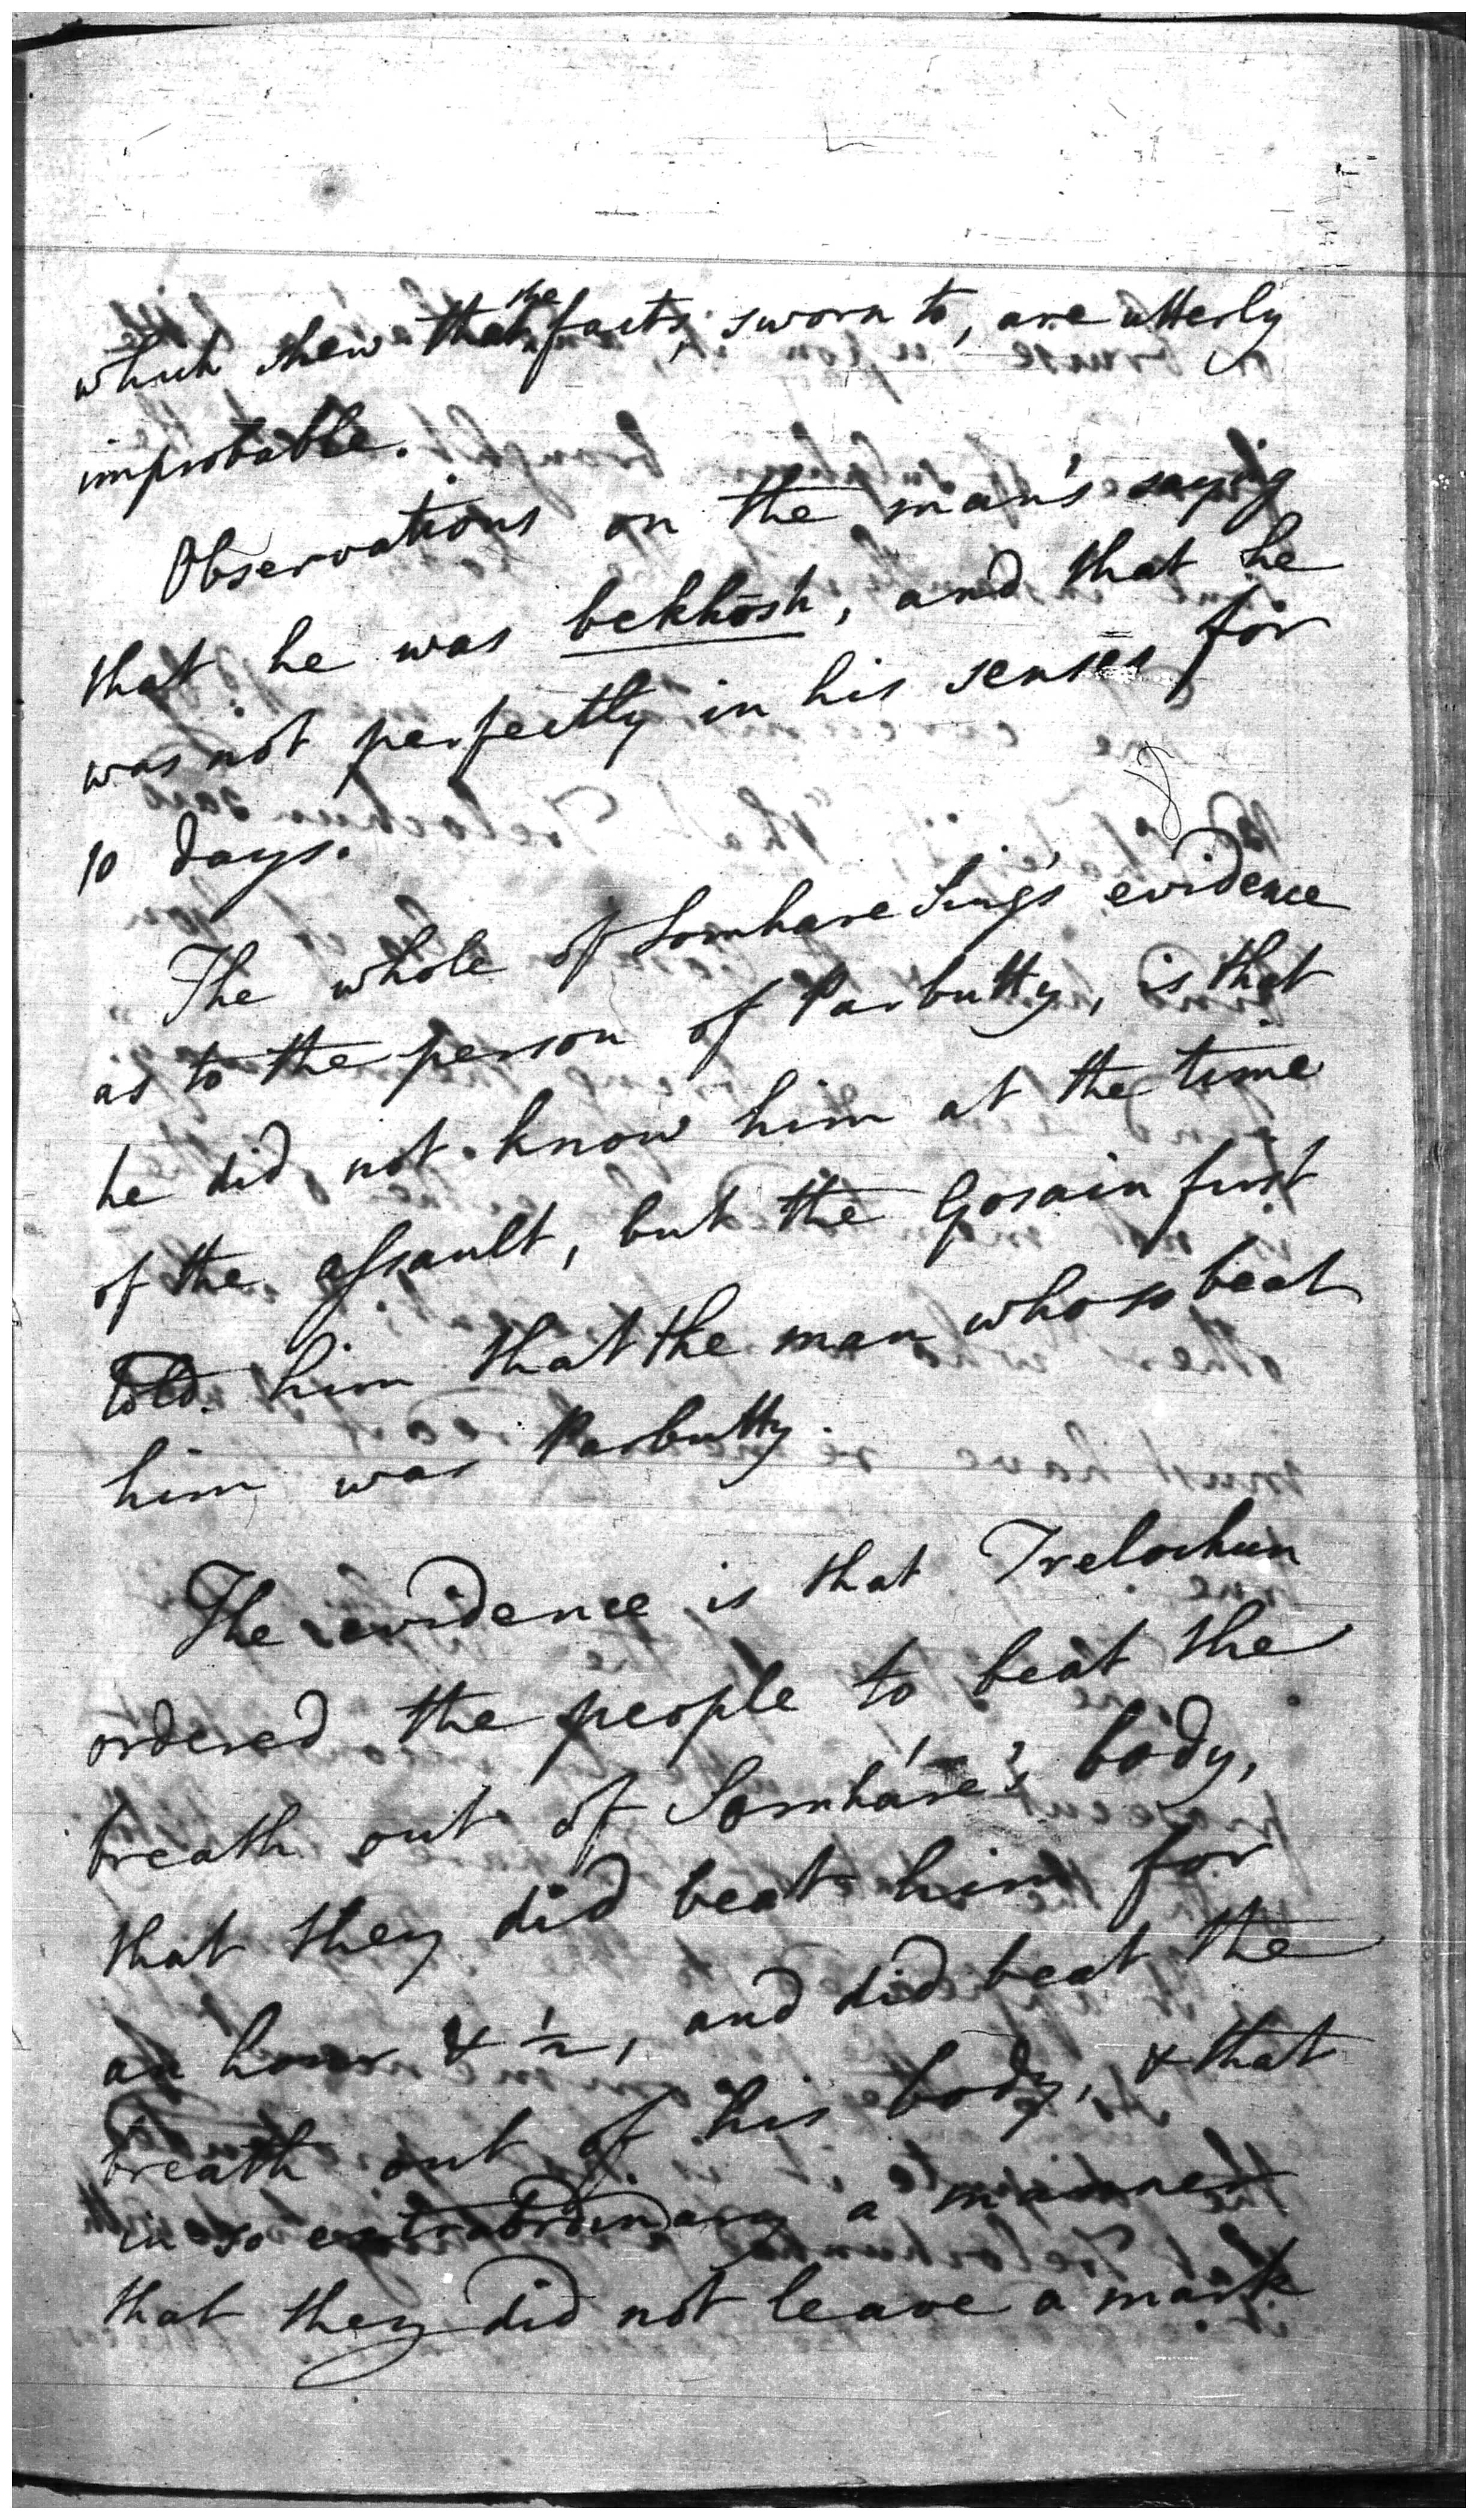 which shew that the facts, sworn to, are utterly
improbable.
Observations on the man's saying
that he was bekhōsh, and that he
was not perfectly in his senses for
10 days.
The whole of Somhare Sing's evidence
as to the person of Parbutty, is that
he did not know him at the time
of the assault, but the Gosain first
told him that the man who so beat
him was Parbutty.
The evidence is that Trelochun
ordered the people to beat the
breath out of Somháre's body,
that they did beat him for
an hour & ½, and did beat the
breath out of his body, & that
in so extraordinary a manner
that they did not leave a mark